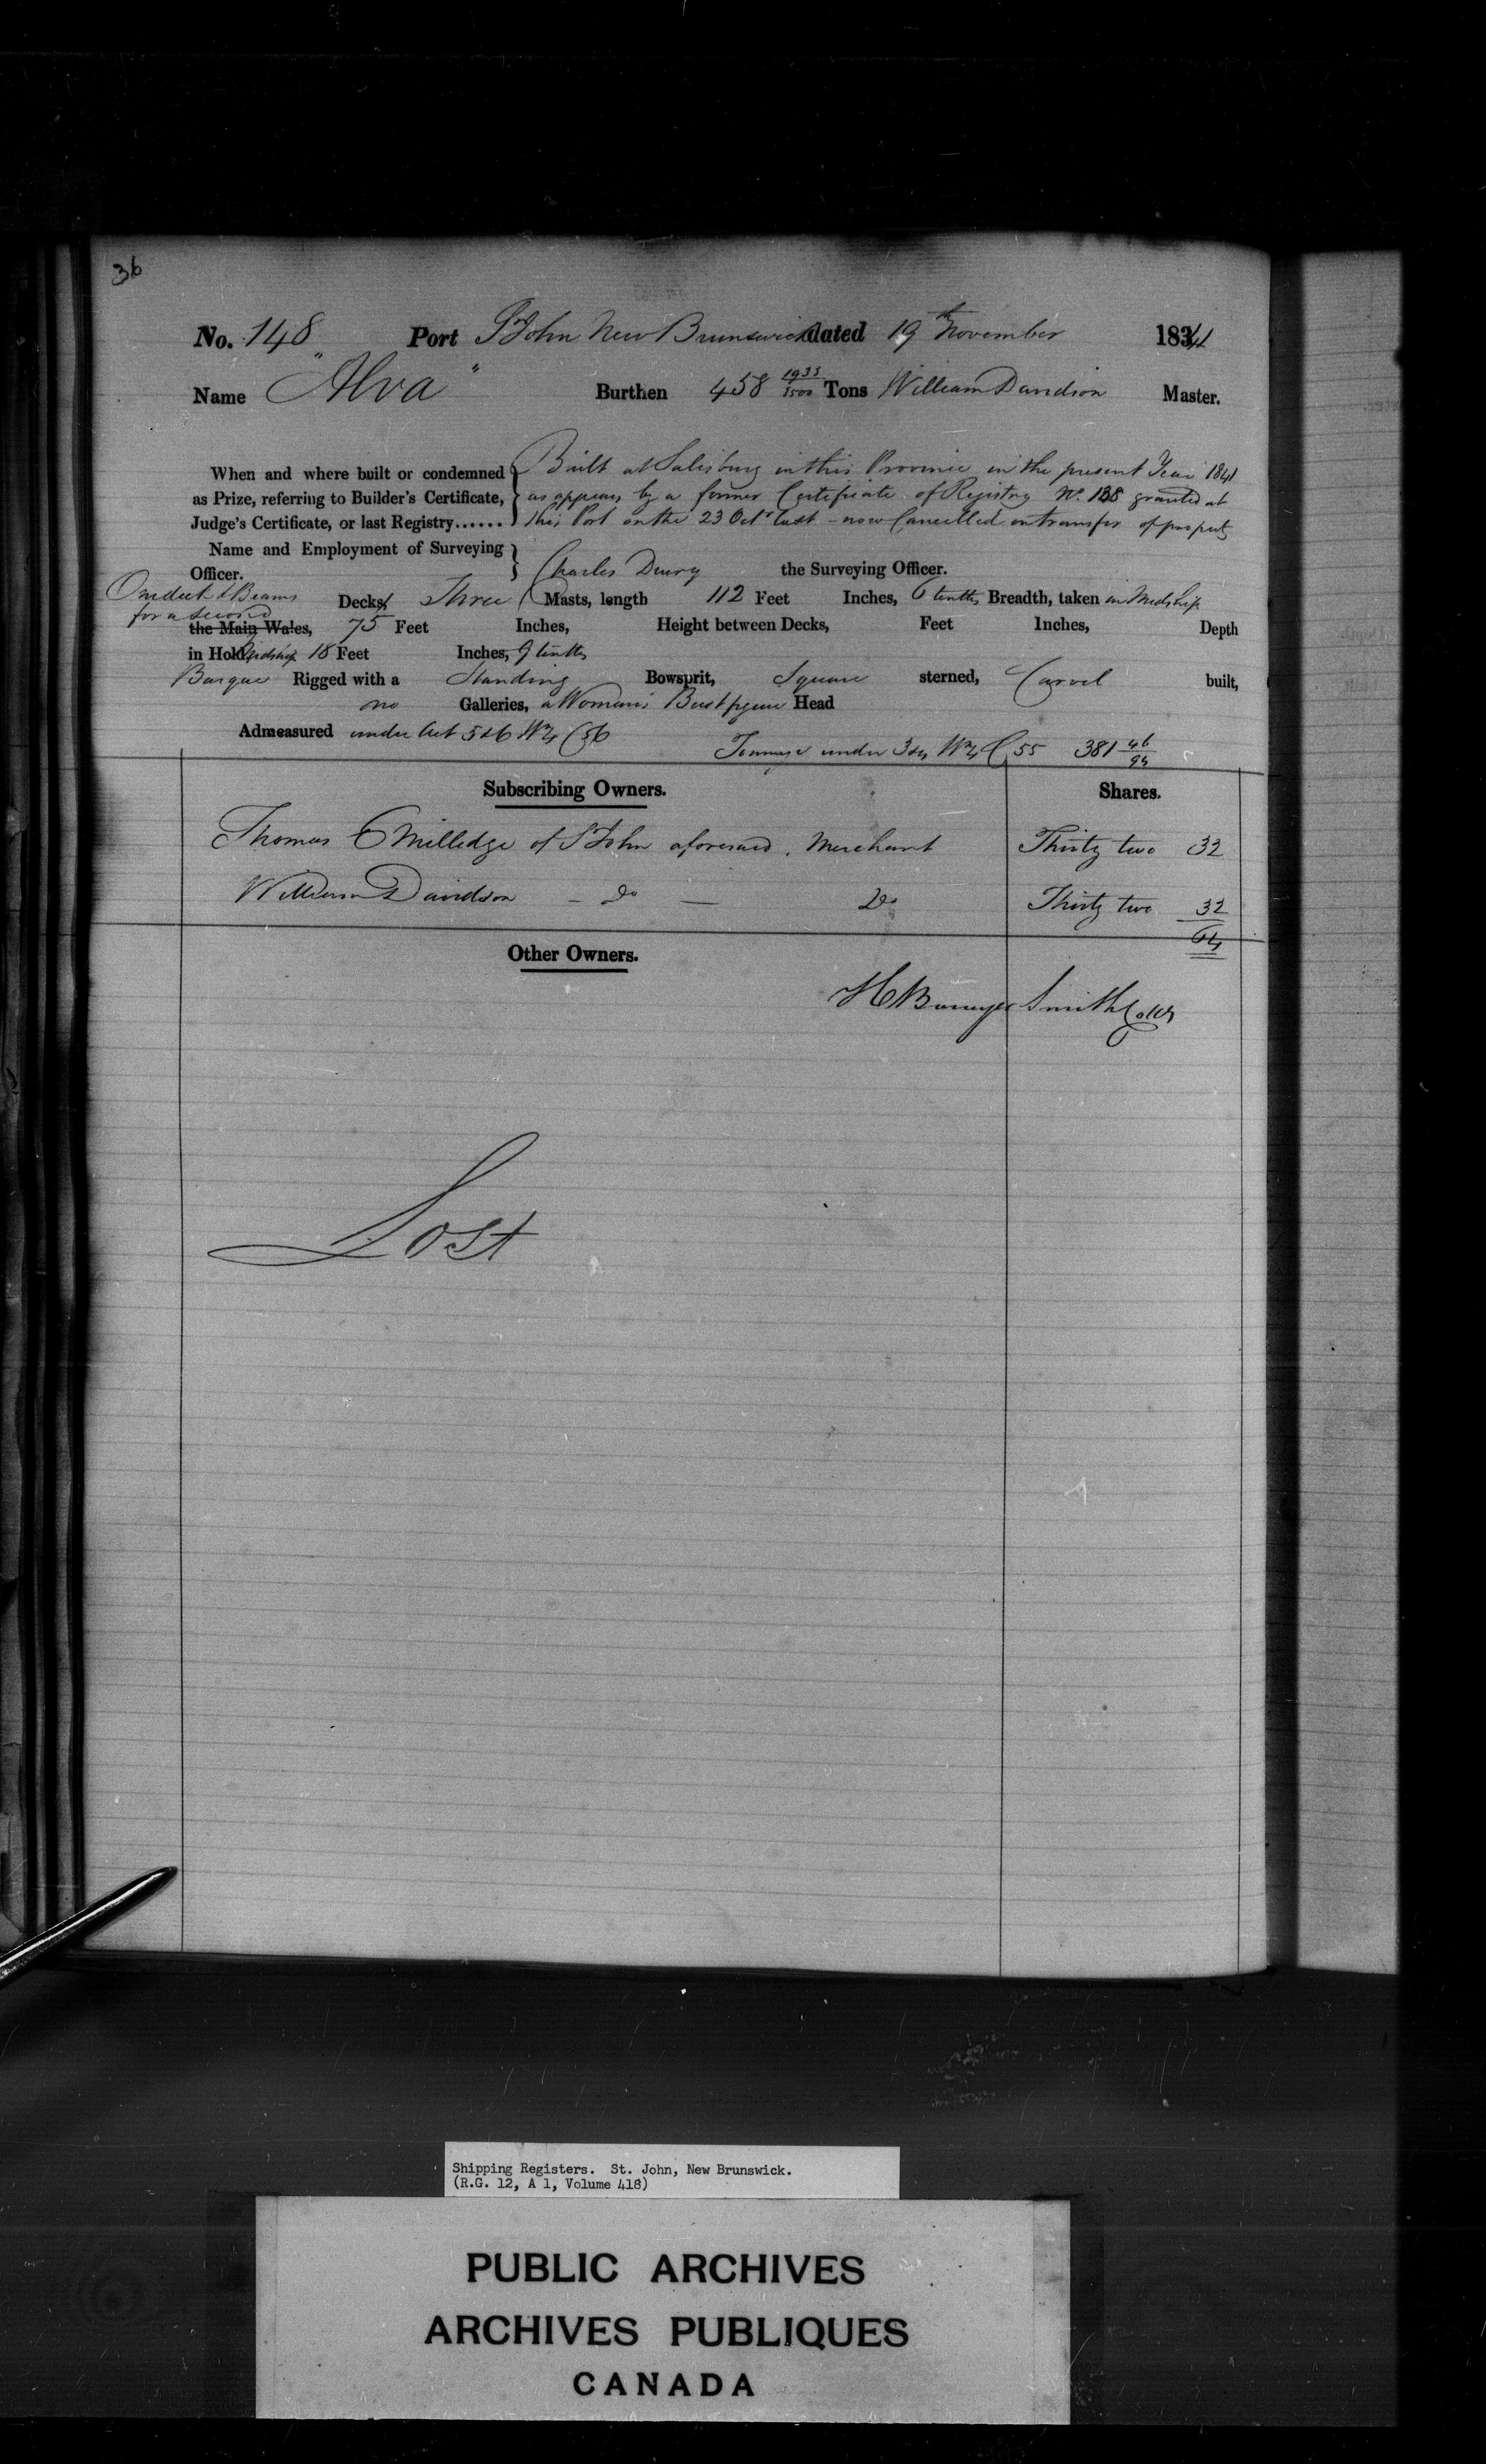 36
No. 148 Port St John New Brunswick dated 19th November 1841
Name "Alva" Burthen 458 1933/3500 Tons William Davidson Master.
When and where built or condemned Built at Salisbury in this Province in the present Year 1841
as Prize, referring to Builder's Certificate, as appears by a former Certificate of Registry No. 138 granted at
Judge's Certificate, or last Registry...... this Port on the 23 Octr last - now Cancelled on transfer of property
Name and Employment of Surveying
Officer. Charles Drury the Surveying Officer.
One deck & Beams
for a second
Decks Three Masts, length 112 Feet Inches, 6 tenths Breadth, taken in Midship
the Main Wales, 75 Feet Inches, Height between Decks, Feet Inches, Depth
in Hold Midship 18 Feet Inches, 9 tenths
Barque Rigged with a Standing Bowsprit, Square sterned, Carvel built,
no Galleries, a Woman's Bust figure Head
Admeasured under Act 5 & 6 Wm 4 C 56
Tonnage under 3 & 4 Wm 4 C 55 381 46/94
Subscribing Owners. Shares.
Thomas E Milledge of St John aforesaid, Merchant Thirty two 32
William Davidson - Do - Do Thirty two 32
64
Other Owners.
H Smith Collr
Lost
Shipping Registers. St. John, New Brunswick.
(R.G. 12, A 1, Volume 418)
PUBLIC ARCHIVES
ARCHIVES PUBLIQUES
CANADA